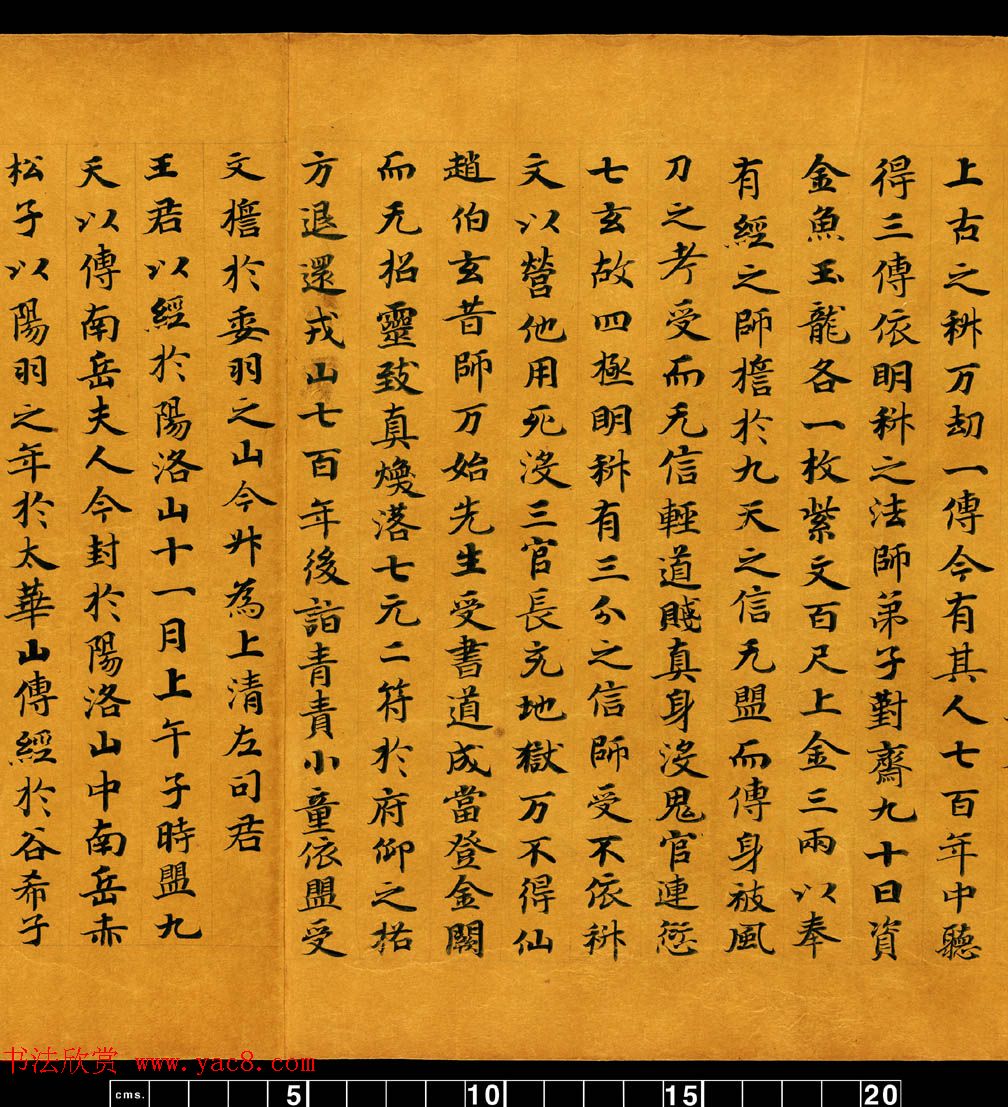 上古之科万劫一傳今有其人七百年中聽
得三傳依明科之法師弟子對齋九十日資
金魚玉龍各一枚紫文百尺上金三兩以奉
有經之師擔於九天之信无盟而傳身被風
刀之考受而无信輕道賤真身沒鬼官連愆
七玄故四極明科有三分之信師受不依科
文以營他用死沒三官長充地獄万不得仙
趙伯玄昔師万始先生受書道成當登金闕
而无招靈致真㷟落七元二符於府仰之格
方退還戎山七百年後詣青責小童依盟受
文擔於委羽之山今升為上清左司君
王君以經於陽洛山十一月上午子時盟九
天以傳南岳夫人今封於陽洛山中南岳赤
松子以陽羽之年於太華山傳經於谷希子
书法欣赏 www.yac8.com
cms. 5 10 15 20